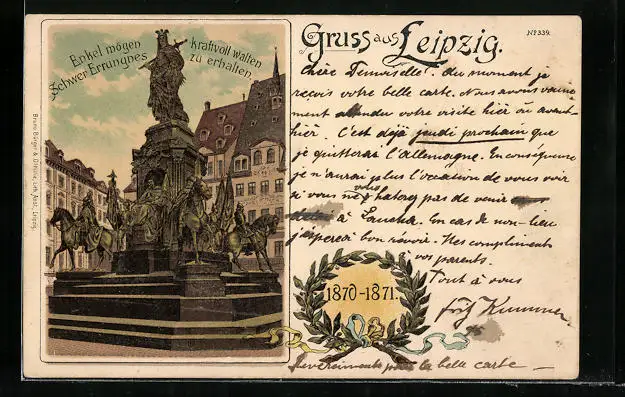 Enkel mögen kraftvoll walten
Schwer Errungnes zu erhalten.
Bruno Bürger & Ottillie, Lith. Anst. Leipzig.
Gruss aus Leipzig.
No 339.
Chère Demoiselle! Au moment je
reçois votre belle carte. Nous avons
ment attendu votre visite hier ou avant-
hier. C'est déjà jeudi prochain que
je quitterai l'Allemagne. En conséquence
je n'aurai plus l'occasion de vous voir
si vous ne vous hatez pas de venir
à Taucha. En cas de non-lieu
j'espère à bon revoir. Mes compliments
à vos parents.
Tout à vous
Fritz Kummer
1870-1871.
pour la belle carte